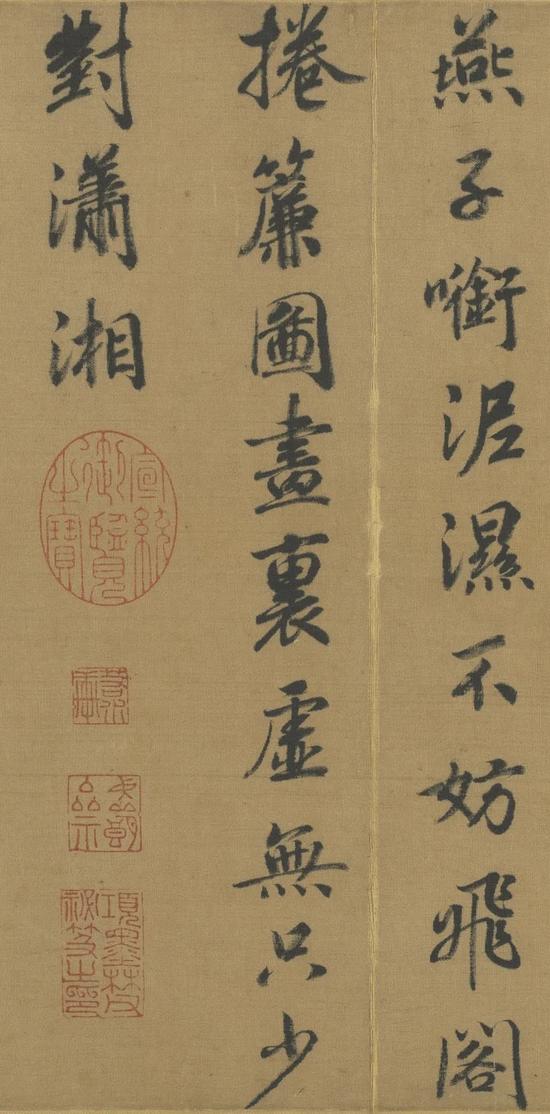 燕子㘅泥濕不妨飛閣
捲簾圖畫裏虛無只少
對瀟湘
宣統御覽之寶